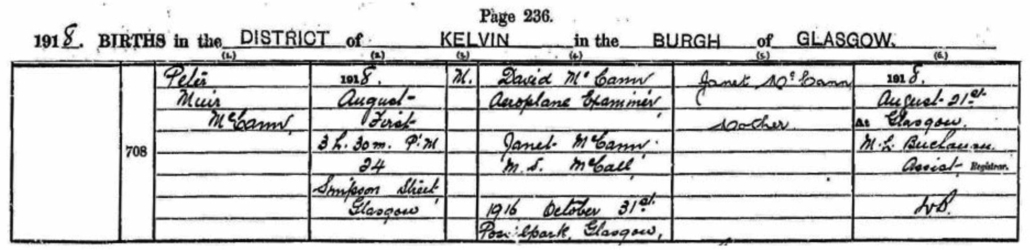 Page 236.
1918. BIRTHS in the DISTRICT of KELVIN in the BURGH of GLASGOW.
(1.) (2.) (3.) (4.) (5.) (6.)
708
Peter
Muir
McCann
1918.
August
First
3 h. 30 m. P.M
24
Simpson Street
Glasgow
M.
David McCann
Aeroplane Examiner
Janet McCann
M.S. McCall
1916 October 31st
Possilpark, Glasgow,
Janet McCann
Mother
1918.
August 21st
At Glasgow.
Buchanan
Assist Registrar.